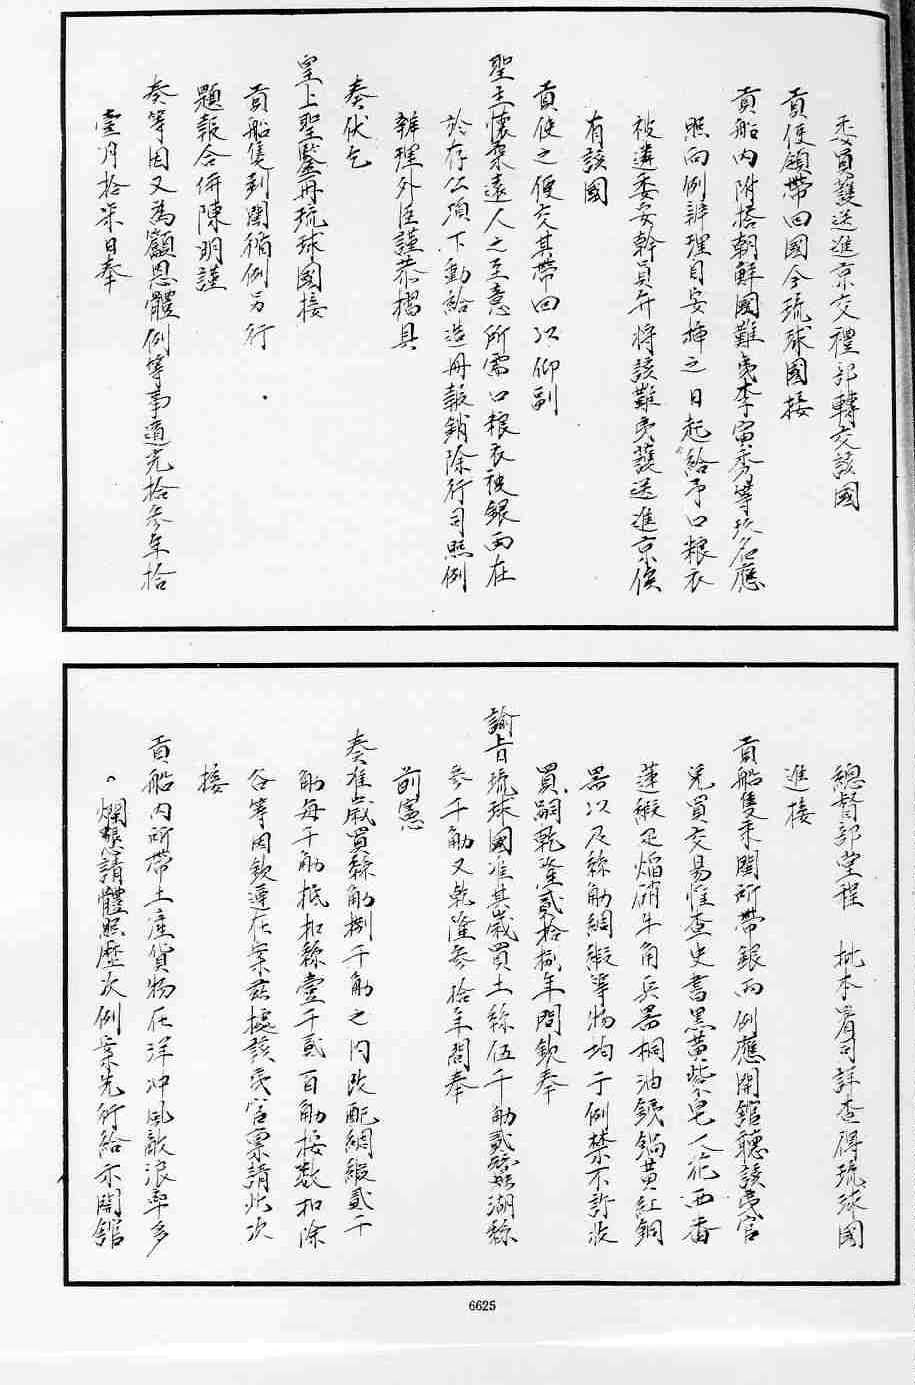 委員護送進京交禮部轉交該國
貢使領帶回國今琉球國接
貢船內附搭朝鮮國難夷李寅秀等玖名應
照向例辦理自安揷之日起給予口粮衣
被遴委妥幹員弁將該難夷護送進京俟
有該國
貢使之便交其帶回以仰副
聖主懷柔遠人之至意所需口粮衣被銀兩在
於存公項下動給造冊報銷除行司照例
辦理外臣謹恭摺具
奏伏乞
皇上聖鑒再琉球國接
貢船隻到閩循例另行
題報合併陳明謹
奏等因又為籲恩體例等事道光拾參年拾
壹月拾柒日奉
總督部堂程 批本署司詳查得琉球國
進接
貢船隻來閩所帶銀兩例應開館聽該夷官
兌買交易惟查史書黑黃紫皂大花西番
蓮緞疋焰硝牛角兵器桐油鐵鍋黃紅銅
器以及絲觔綢緞等物均干例禁不許收
買嗣乾隆貳拾捌年間欽奉
諭旨琉球國准其歲買土絲伍千觔貳蠶湖絲
參千觔又乾隆參拾年間奉
前憲
奏准歲買絲觔捌千觔之內改配綢緞貳千
觔每千觔抵扣絲壹千貳百觔按數扣除
各等因欽遵在案玆據該夷官稟請此次
接
貢船內所帶土產貨物在洋冲風敵浪率多
爛懇請體照歷次例案先行給示開舘
6625